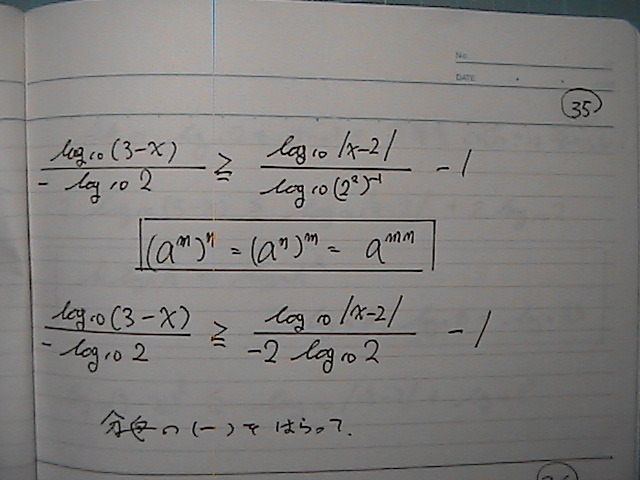 No.
DATE
35
log₁₀(3-x) / -log₁₀2 ≧ log₁₀|x-2| / log₁₀(2²)⁻¹ - 1
(aᵐ)ⁿ = (aⁿ)ᵐ = aᵐⁿ
log₁₀(3-x) / -log₁₀2 ≧ log₁₀|x-2| / -2 log₁₀2 - 1
分母の(-)をはらって.